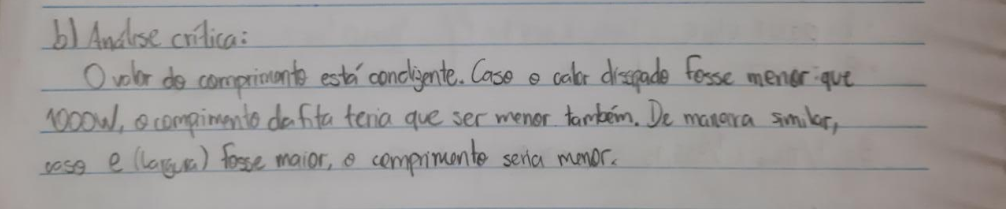 b) Análise crítica:
O valor do comprimento está condizente. Caso o calor dissipado fosse menor que
1000W, o compimento da fita teria que ser menor também. De maneira similar,
caso e (largura) fosse maior, o comprimento seria menor.